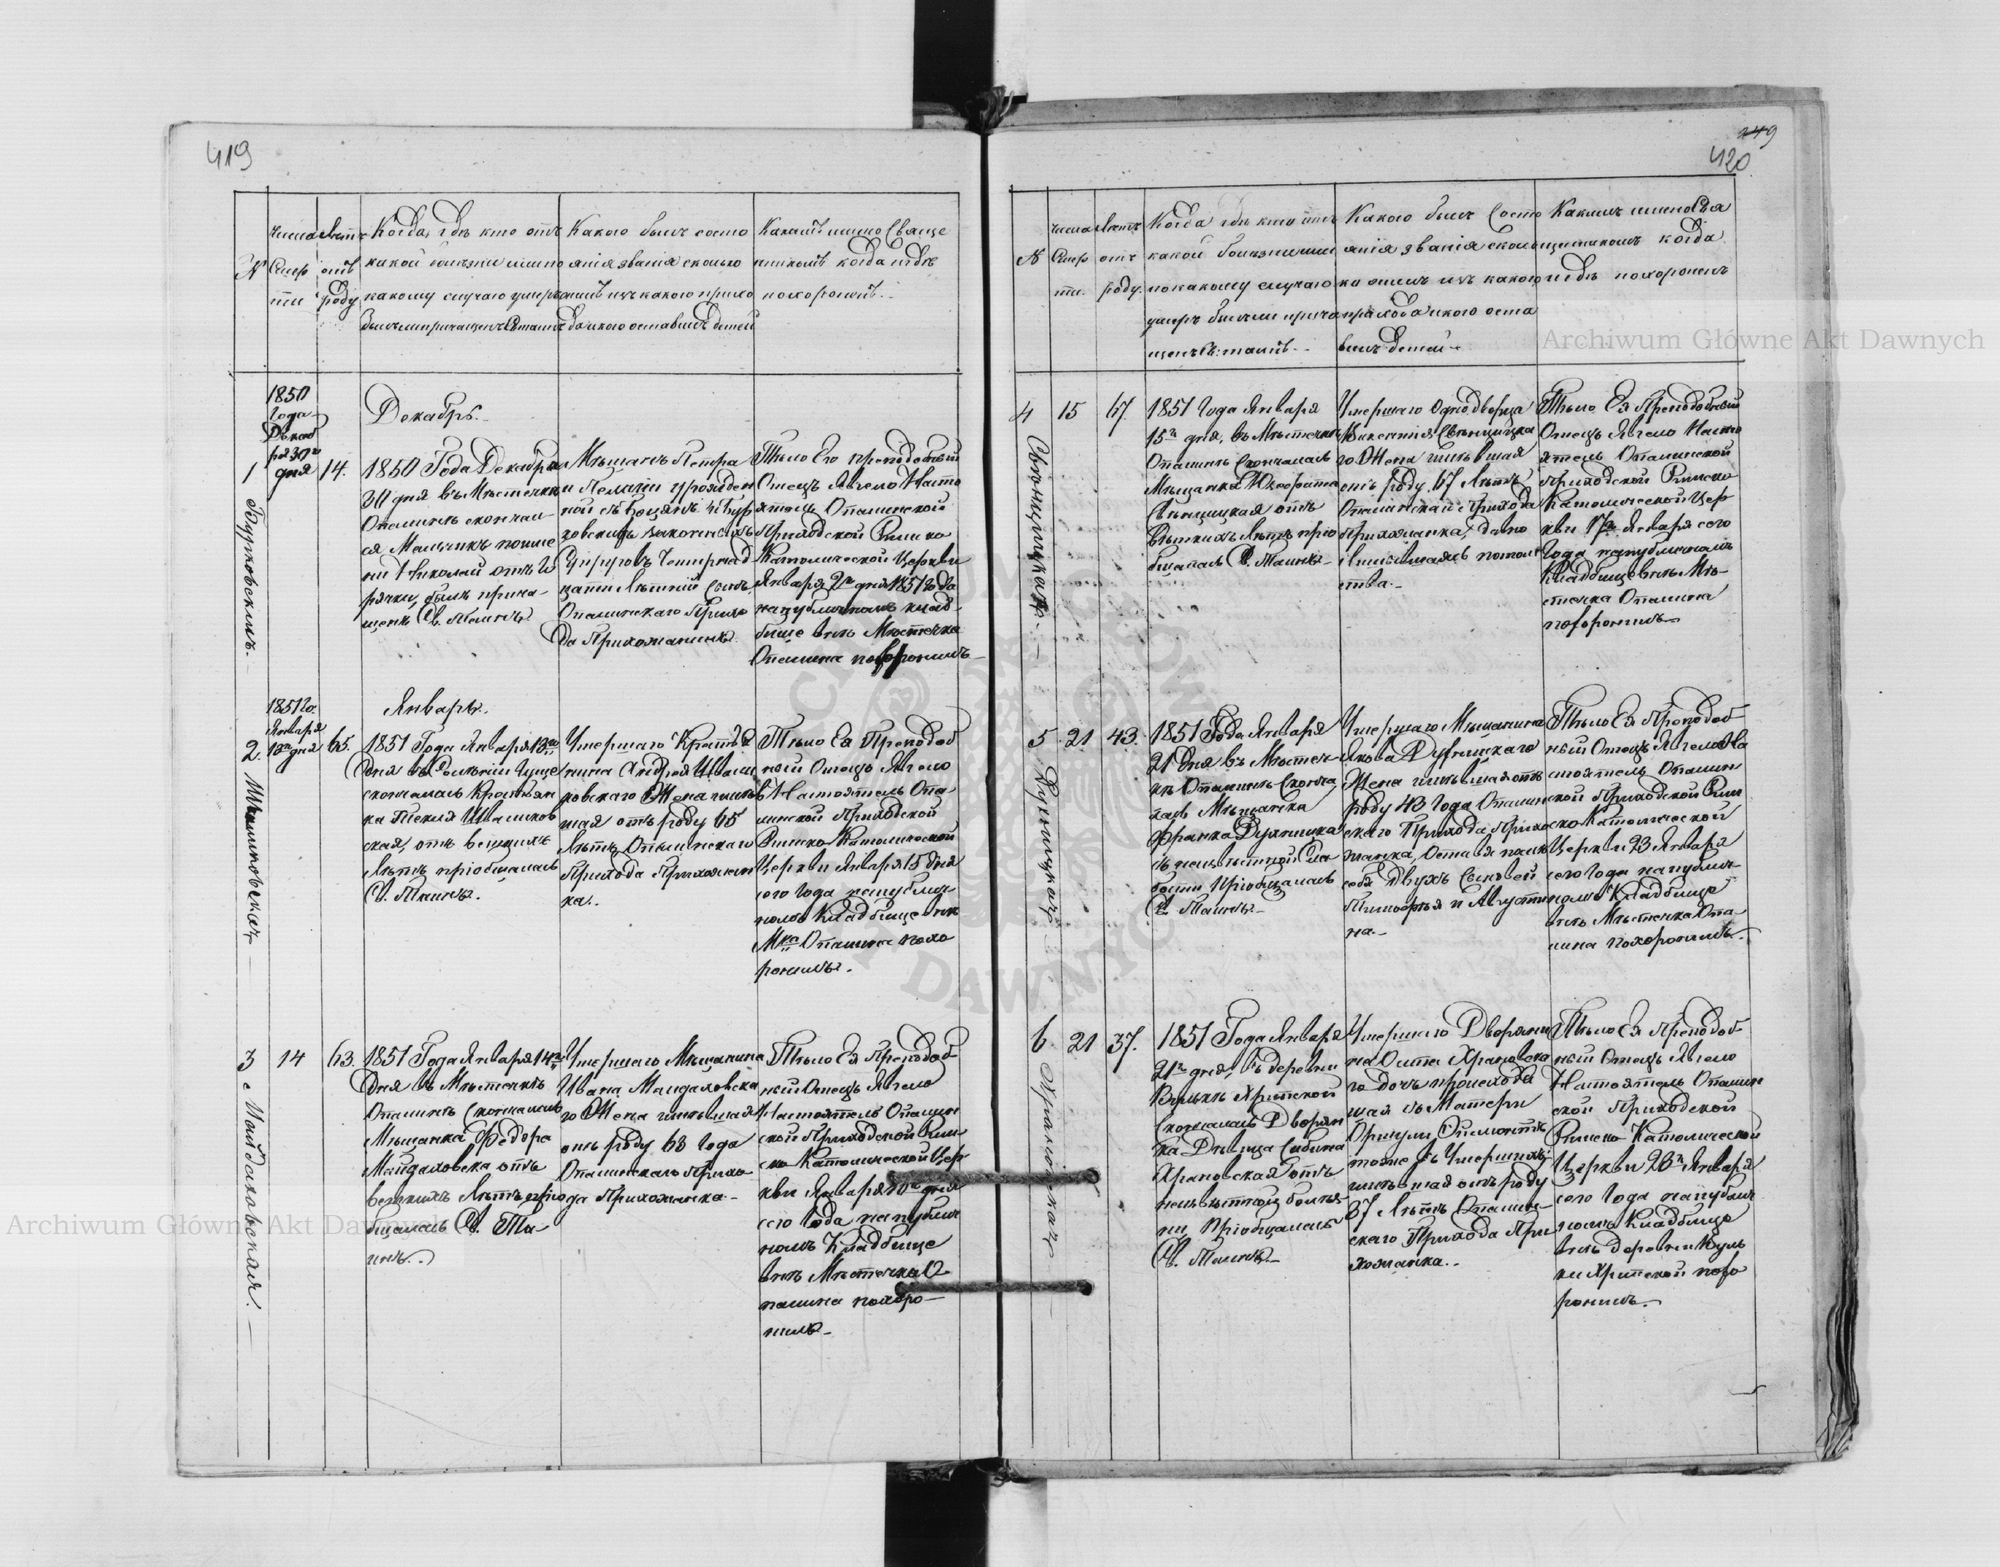 419
№
числа Смер ти
Летъ отъ роду
Когда, где кто отъ
какой болезни или по
какому случаю умеръ
былъ ли причащенъ Св. таинъ
Какого былъ состо
янія званія сколько
летъ изъ какого прихо
да и кого оставилъ детей
Какимъ имено Свяще
нникомъ когда и где
похороненъ.
1850
Года
Декаб
ря 30го
дня
Декабрь.
1
14.
Бурковскимъ.
1850 Года Декабря
30 дня въ Местечке
Опалине скончал
ся Мальчикъ по име
ни Николай отъ Го
рячки, былъ прича
щенъ Св. Таинъ
Мещанъ Петра
и Пелагіи урожден
ной
законныхъ
Супруговъ Четирнад
цатилетній Сынъ,
Опалинскаго Прихо
да Прихожанинъ.
Тело Его преподобный
Отецъ Ягело Насто
ятель Опалинской
Приходской Римско
Католической Церкви
Января 2го дня 1851 Года
на публичномъ клад
бище вне Местечка
Опалина похоронилъ
1851 го.
Января
13го дня
Январь.
2
65.
1851 Года Января 13го
Дня въ Гуще
скончалась Крестьян
ка Текля Ивашков
ская, отъ ветхихъ
Летъ пріобщалась
Св. Таинъ.
Умершаго Крестья
нина Андрея Иваш
ковскаго Жена жив
шая отъ роду 65
Летъ Опалинскаго
Прихода Прихожан
ка.
Тело Ея Преподоб
ный Отецъ Ягело
Настоятель Опа
линской Приходской
Римско Католической
Церкви Января 15 дня
сего Года на публич
номъ Кладбище вне
Мка Опалина похо
ронилъ.
3
14
63.
Майдаховская.
1851 Года Января 14го
Дня въ Местечке
Опалине Скончалась
Мещанка Федора
Майдаховска отъ
ветхихъ Летъ прio
бщалась Св. Та
инъ.
Умершаго Мещанина
Ивана Майдаховска
го Жена жившая
отъ роду 63 Года
Опалинскаго Прихо
да Прихожанка
Тело Ея Преподоб
ный Отецъ Ягело
Настоятель Опалин
ской Приходской Рим
ско Католической Цер
кви Января дня
сего Года на публич
номъ Кладбище
вне Местечка О
палина похоро
нилъ.
420
№
числа Смер ти.
Летъ отъ роду.
Когда где кто отъ
какой болезни или
по какому случаю
умеръ былъ ли прича
щенъ Св: таинъ.
Какого былъ Состо
янія званія сколь
ко летъ изъ какого
прихода и кого оста
вилъ детей
Какимъ имено Свя
щенникомъ когда
и где похороненъ
4
15
67.
1851 Года Января
15го дня, въ Местечке
Опалине Скончалась
Мещанка Юзефата
Свенцицкая отъ
Ветхихъ Летъ прio
бщалась Св. Таинъ
Умершаго Однодворца
Викентія Свенцицка
го Жена жившая
отъ роду 67 Летъ
Опалинскаго Прихода
Прихожанка, давно

ства.
Тело Ея Преподобный
Отецъ Ягело Насто
ятель Опалинской
Приходской Римско
Католической Цер
кви Января сего
Года на публичномъ
Кладбище вне Ме
стечка Опалина
похоронилъ
5
21
43.
1851 Года Января
21 Дня въ Местеч
ке Опалине Сконча
лась Мещанка
Франка
Сла
бости Пріобщалась
Св. Таинъ
Умершаго Мещанина
Якова
Жена жившая отъ
роду 43 Года Опалин
скаго Прихода Прихо
жанка, Оставя после
себя Двухъ Сыновей
Тимофтея и Августи
на.
Тело Ея Преподоб
ный Отецъ Ягело На
стоятель Опалин
ской Приходской Рим
ско Католической
Церкви 23 Января
сего Года на публич
номъ Кладбище
вне Местечка Опа
лина похоронилъ.
6
21
37.
Храновская
1851 Года Января
21го дня, въ деревни
Вульке Хрипской
скончалась Дворян
ка Девица Сабина
Храновская отъ
неизвестной болез
ни Пріобщалась
Св. Таинъ
Умершаго Дворяни
на Осипа Храновска
го дочь происходя
щая съ Матери

тоже съ Умершихъ;
жившая отъ роду
37 Летъ Опалин
скаго Прихода При
хожанка.
Тело Ея Преподоб
ный Отецъ Ягело
Настоятель Опалин
ской Приходской
Римско Католической
Церкви 23го Января
сего Года на публич
номъ Кладбище
вне деревни Вуль
ки Хрипской похо
ронилъ.
Archiwum Główne Akt Dawnych
Archiwum Główne Akt Dawnych